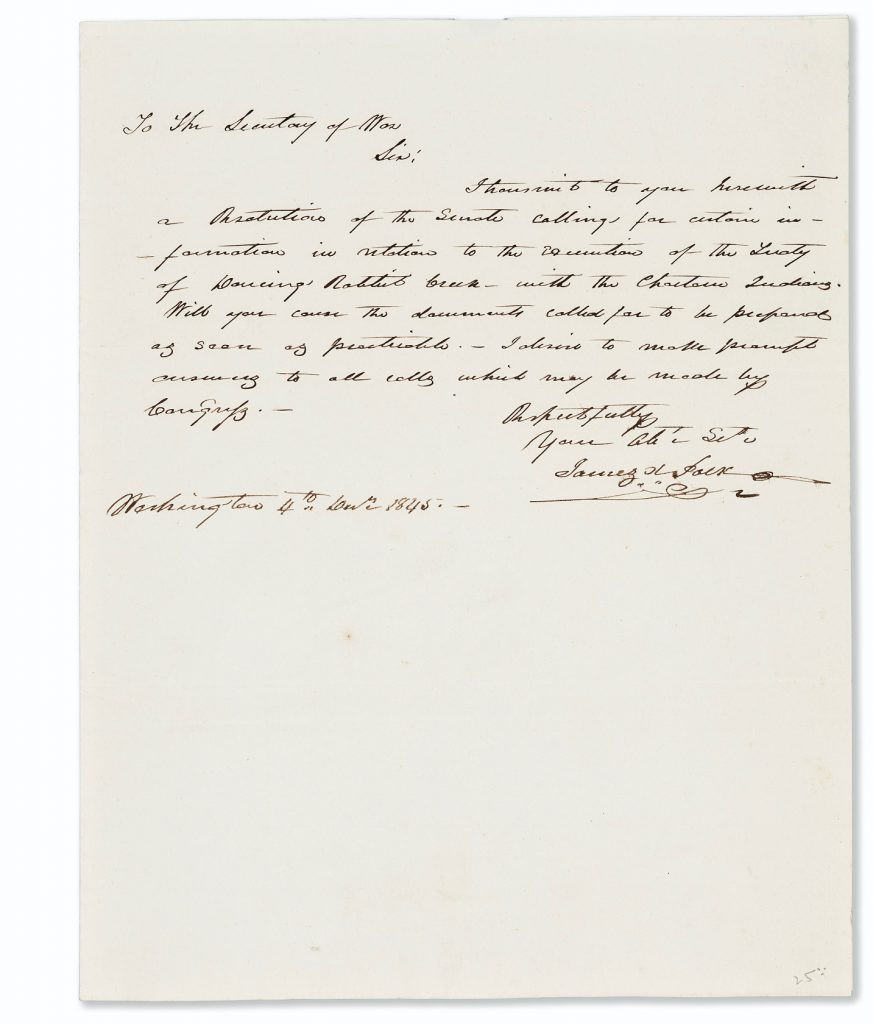 To The Secretary of War
Sir:
I transmit to you herewith
a Resolution of the Senate calling for certain in-
-formation in relation to the execution of the Treaty
of Dancing Rabbit Creek - with the Choctaw Indians.
Will you cause the documents called for to be prepared
as soon as practicable. - I desire to make prompt
answers to all calls which may be made by
Congress. -
Respectfully
Your Obt Set
James K Polk
Washington 4th Decr 1845. -
25